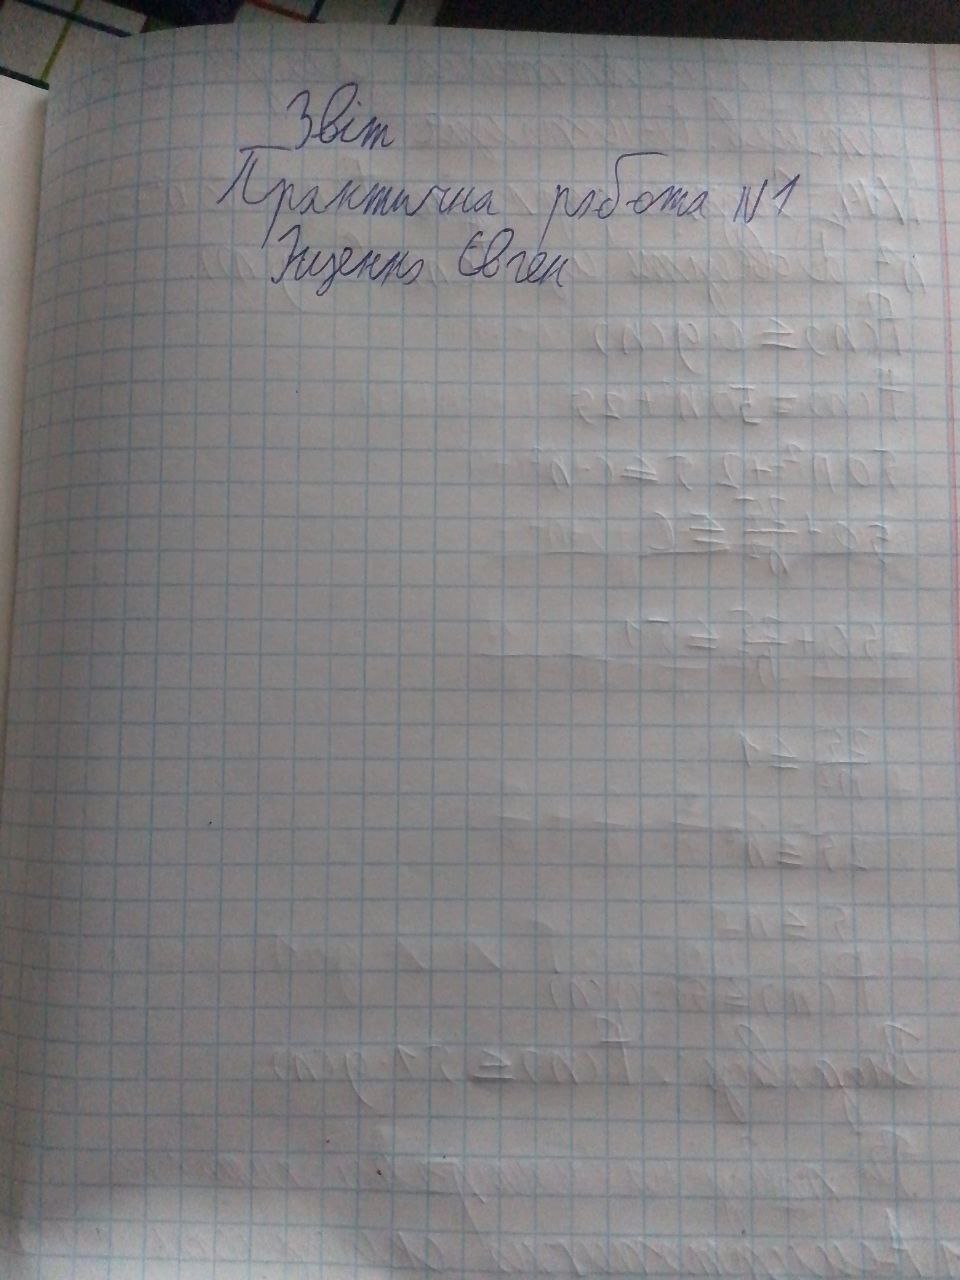 Звіт
Практична робота N1
Яценко Євген